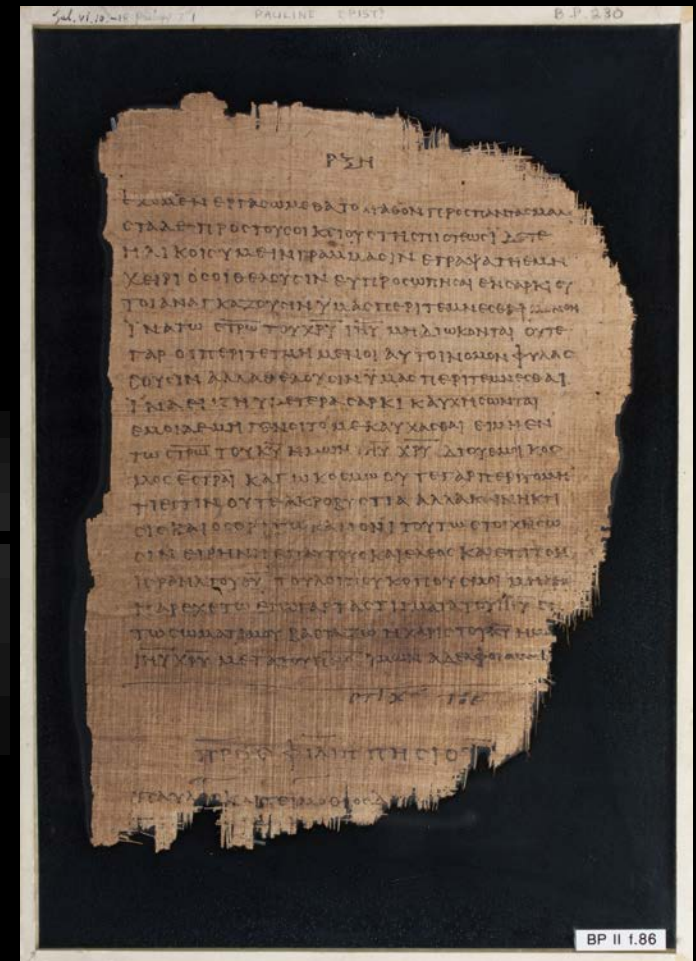 Gal. vi. 10.-18 Phil. I 1
PAULINE EPIST.
B.P. 230
ΡΞΗ
ΕΧΟΜΕΝ ΕΡΓΑΣΩΜΕΘΑ ΤΟ ΑΓΑΘΟΝ ΠΡΟΣ ΠΑΝΤΑΣ
ΣΤΑ ΔΕ ΠΡΟΣ ΤΟΥΣ ΟΙΚΕΙΟΥΣ ΤΗΣ ΠΙΣΤΕΩΣ ΙΔΕΤΕ
ΗΛΙΚΟΙΣ ΥΜΕΙΝ ΓΡΑΜΜΑΣΙΝ ΕΓΡΑΨΑ ΤΗ ΕΜΗ
ΧΕΙΡΙ ΟΣΟΙ ΘΕΛΟΥΣΙΝ ΕΥΠΡΟΣΩΠΗΣΑΙ ΕΝ ΣΑΡΚΙ ΟΥ
ΤΟΙ ΑΝΑΓΚΑΖΟΥΣΙΝ ΥΜΑΣ ΠΕΡΙΤΕΜΝΕΣΘΑΙ
ΙΝΑ ΤΩ ΣΤΡΩ ΤΟΥ ΧΡΥ ΙΗΥ ΜΗ ΔΙΩΚΟΝΤΑΙ ΟΥΤΕ
ΓΑΡ ΟΙ ΠΕΡΙΤΕΤΜΗΜΕΝΟΙ ΑΥΤΟΙ ΝΟΜΟΝ ΦΥΛΑΣ
ΣΟΥΣΙΝ ΑΛΛΑ ΘΕΛΟΥΣΙΝ ΥΜΑΣ ΠΕΡΙΤΕΜΝΕΣΘΑΙ
ΙΝΑ ΕΝ ΤΗ ΥΜΕΤΕΡΑ ΣΑΡΚΙ ΚΑΥΧΗΣΩΝΤΑΙ
ΕΜΟΙ ΔΕ ΜΗ ΓΕΝΟΙΤΟ ΜΕ ΚΑΥΧΑΣΘΑΙ ΕΙ ΜΗ ΕΝ
ΤΩ ΣΤΡΩ ΤΟΥ ΚΥ ΗΜΩΝ ΙΗΥ ΧΡΥ ΔΙ ΟΥ ΕΜΟΙ ΚΟΣ
ΜΟΣ ΕΣΤΡΑΙ ΚΑΓΩ ΚΟΣΜΩ ΟΥΤΕ ΓΑΡ ΠΕΡΙΤΟΜΗ
ΤΙ ΕΣΤΙΝ ΟΥΤΕ ΑΚΡΟΒΥΣΤΙΑ ΑΛΛΑ ΚΑΙΝΗ ΚΤΙ
ΣΙΣ ΚΑΙ ΟΣΟΙ ΤΩ ΚΑΝΟΝΙ ΤΟΥΤΩ ΣΤΟΙΧΗΣΩ
ΣΙΝ ΕΙΡΗΝΗ ΕΠ ΑΥΤΟΥΣ ΚΑΙ ΕΛΕΟΣ ΚΑΙ ΕΠΙ ΤΟΝ
ΙΣΡΑΗΛ ΤΟΥ ΘΥ ΤΟΥ ΛΟΙΠΟΥ ΚΟΠΟΥΣ ΜΟΙ
ΠΑΡΕΧΕΤΩ ΕΓΩ ΓΑΡ ΤΑ ΣΤΙΓΜΑΤΑ ΤΟΥ ΙΗΥ ΕΝ
ΤΩ ΣΩΜΑΤΙ ΜΟΥ ΒΑΣΤΑΖΩ Η ΧΑΡΙΣ ΤΟΥ ΚΥ
ΙΗΥ ΧΡΥ ΜΕΤΑ ΤΟΥ ΥΜΩΝ ΑΔΕΛΦΟΙ
ΣΤΙΧ ΤΟΕ
ΠΡΟΣ ΦΙΛΙΠΠΗΣΙΟΥΣ
ΠΑΥΛΟΣ ΚΑΙ ΤΕΙΜΟΘΕΟΣ
BP II f.86